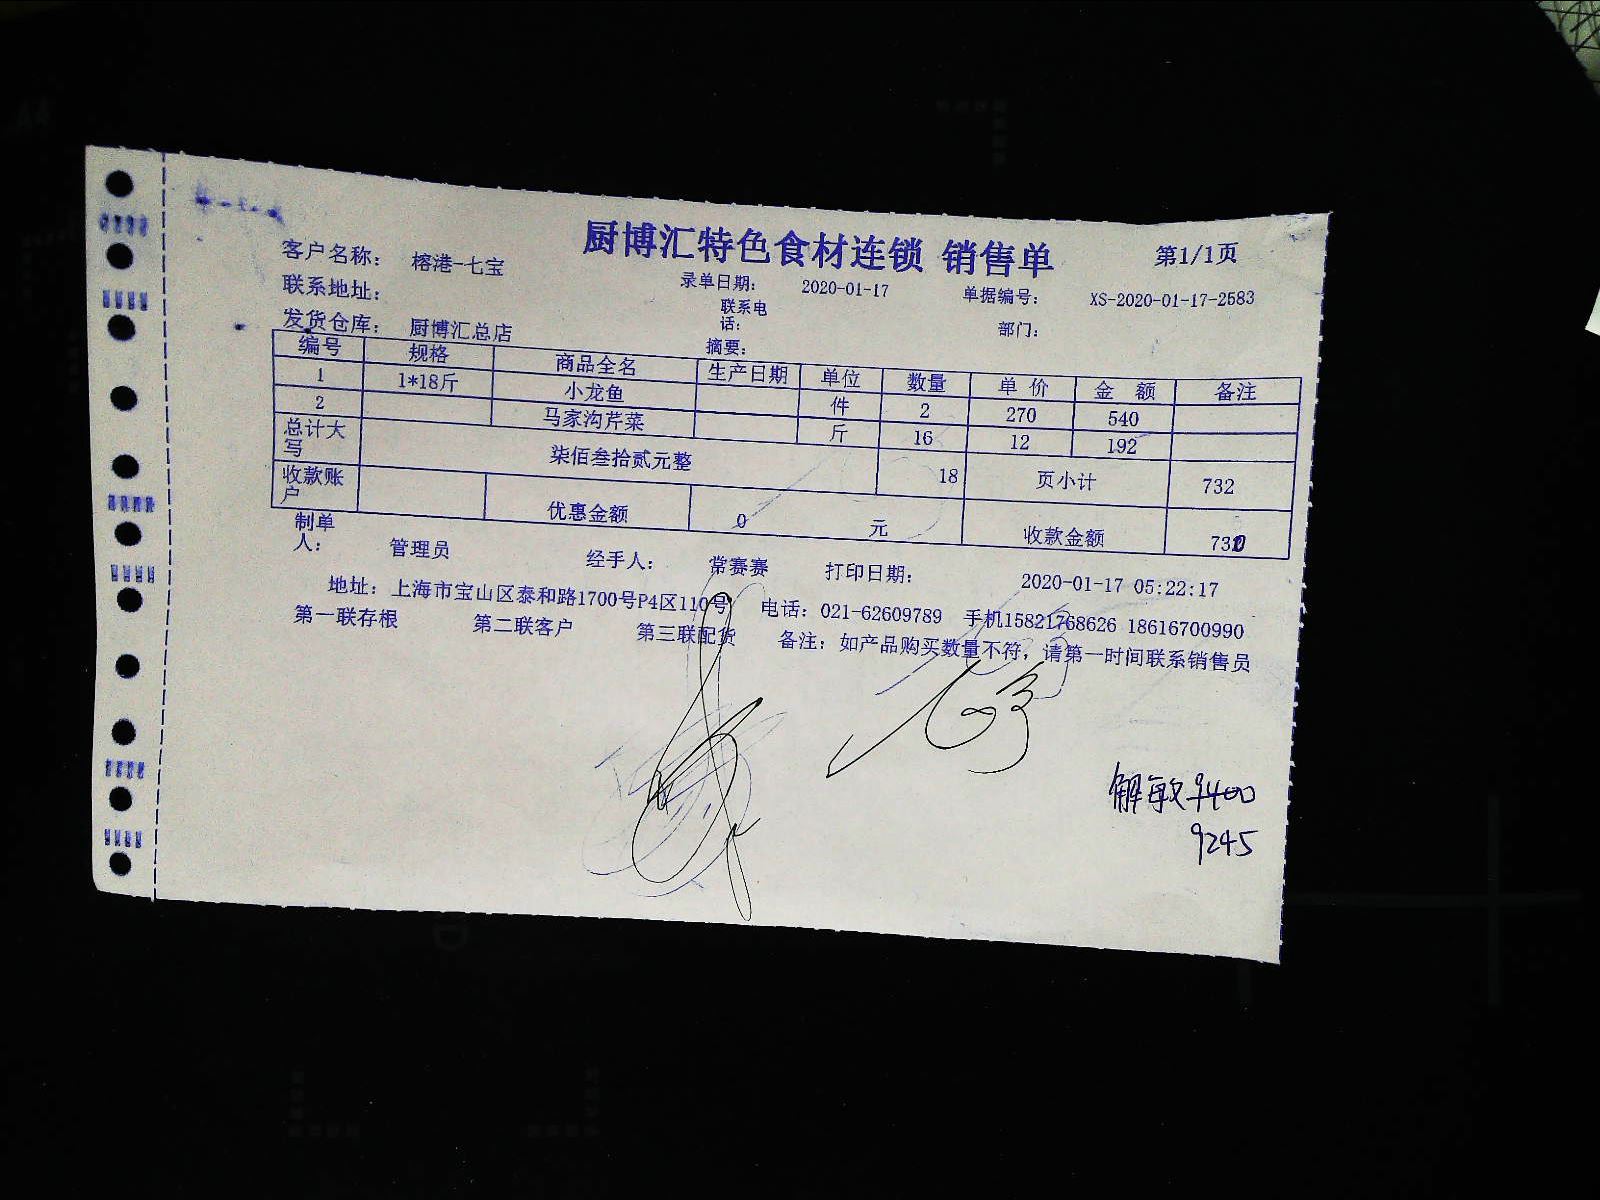 厨博汇特色食材连锁 销售单 第1/1页
客户名称： 榕港-七宝 录单日期： 2020-01-17 单据编号： XS-2020-01-17-2583
联系地址： 联系电话： 部门：
发货仓库： 厨博汇总店 摘要：
编号 规格 商品全名 生产日期 单位 数量 单价 金额 备注
1 1*18斤 小龙鱼 件 2 270 540
2 马家沟芹菜 斤 16 12 192
总计大写 柒佰叁拾贰元整 18 页小计 732
收款账户 优惠金额 0 元 收款金额 730
制单人： 管理员 经手人： 常赛赛 打印日期： 2020-01-17 05:22:17
地址：上海市宝山区泰和路1700号P4区110号 电话：021-62609789 手机15821768626 18616700990
第一联存根 第二联客户 第三联配货 备注：如产品购买数量不符，请第一时间联系销售员
解敏 9400
9245